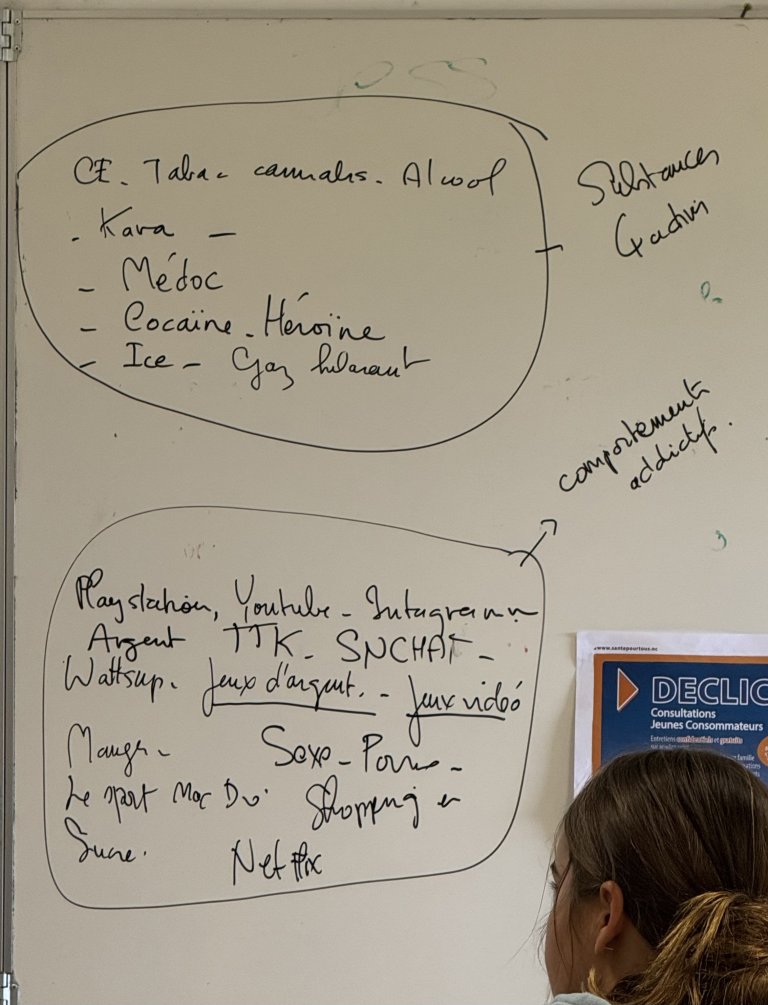 CE. Tabac cannabis. Alcool
- Kava -
- Médoc
- Cocaïne - Héroïne
- Ice - Gaz hilarant
Substances
comportements
addictifs.
Playstation, Youtube - Intagramm
Argent TTK - SNCHAT -
Wattsup. Jeux d'argent. - Jeux vidéo
Manger - Sexe - Porno -
Le sport Mac Do. Shopping
Sucre. Netflix
www.santepourtous.nc
DECLIC
Consultations
Jeunes Consommateurs
Entretiens confidentiels et gratuits
famille